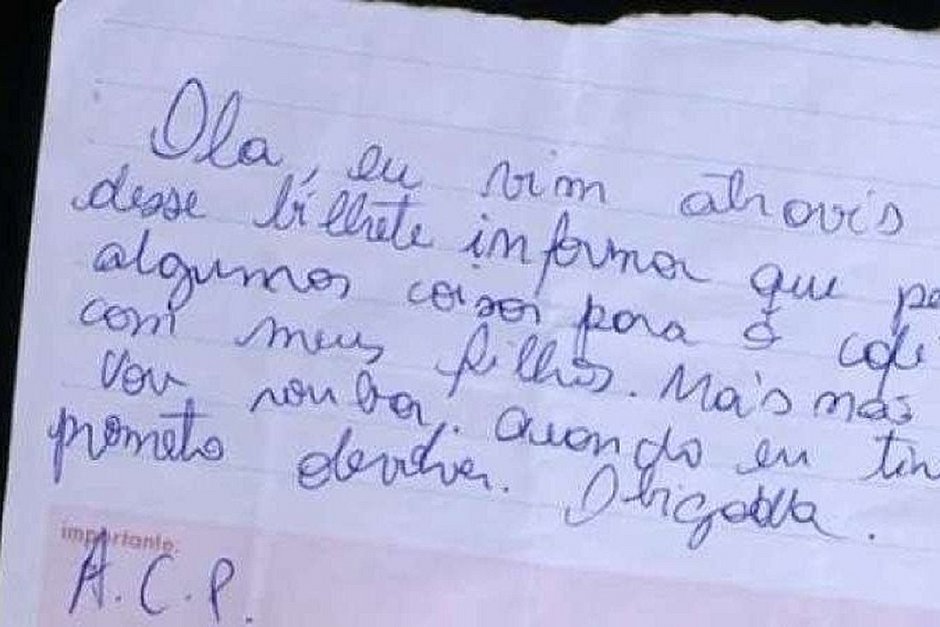 Ola, eu vim atravis
desse bilhete informar que
algumas coisas para o
com meus filhos. Mais mas
vou rouba. Quando eu
prometo devolver. Obigada.
importante:
A.C.P.